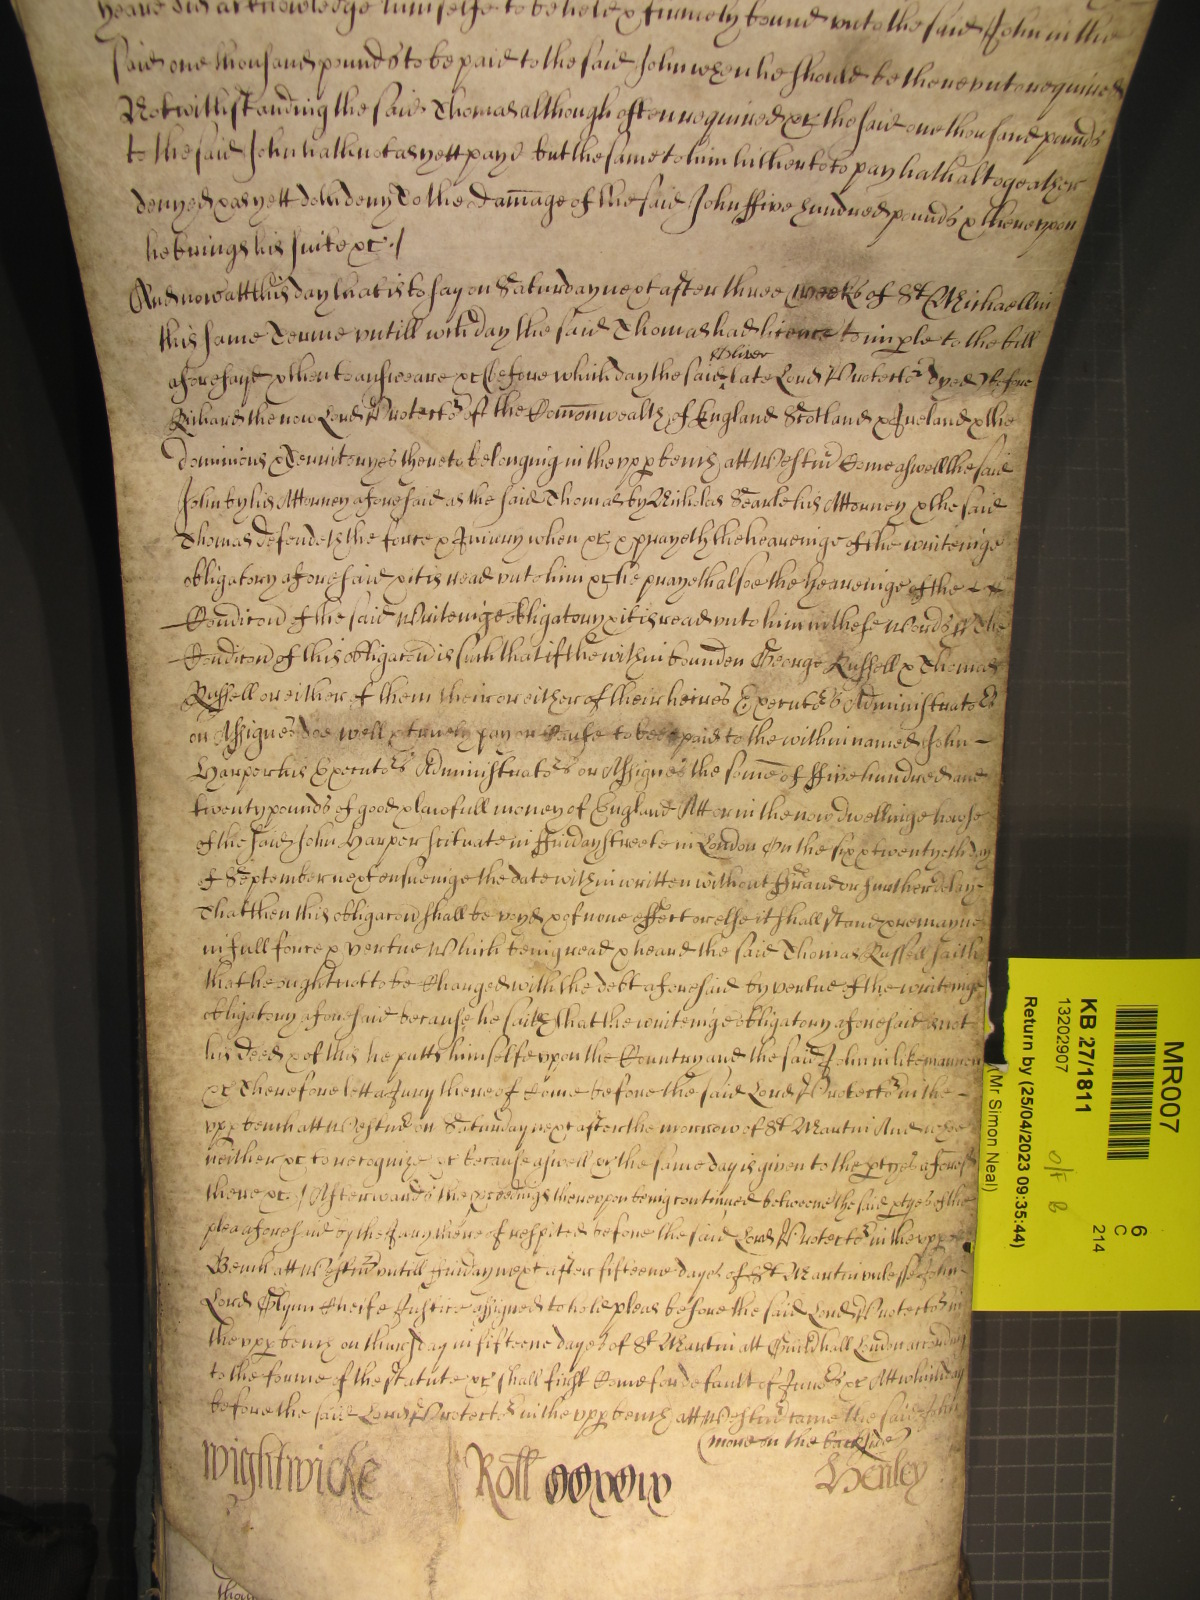 yeare did acknowledge himselfe to be held & firmely bound unto the said John in the
said one thousand pounds to be paid to the said John when he should be thereunto required
Notwithstanding the said Thomas although often required &c the said one thousand pounds
to the said John hath not as yett payd but the same to him hitherto to pay hath altogeather
denyed & as yett doth deny To the Damage of the said John ffive hundred pounds & thereupon
he brings his suite &c /
And now att this day that is to say on Saturday next after three weekes of St Michaell in
this same Terme untill which day the said Thomas had licence to imple to the bill
aforesayd & then to answeare &c (before which day the said late Lord Protector dyed) before
Oliver
Richard the now Lord Protector of the Comonwealth of England Scotland & Ireland & the
dominions & Territoryes thereto belonging in the upp bench att Westmr Come aswell the said
John by his Attorney aforesaid as the said Thomas by Nicholas Searle his Attorney & the said
Thomas defendeth the force & Iniury when &c & prayeth the heareinge of the writeinge
obligatory aforesaid & it is read unto him &c he prayeth alsoe the heareinge of the
Condicon of the said writeinge obligatory & it is read unto him in these words ss The
Condicon of this obligacon is such that if the within bounden George Russell & Thomas
Russell or either of them their or either of their heires Executors Administrators
or Assignes doe well & truely pay or Cause to bee paid to the within named John
Harper his Executors Administrators or Assignes the some of ffive hundred and
twenty pounds of good & lawfull money of England Att or in the now dwellinge howse
of the said John Harper scituate in ffriday streete in London On the six & twentyeth day
of September next ensueinge the date within written without fraud or further delay
That then this obligacon shall be voyd & of none effect or else it shall stand & remayne
in full force & vertue Which being read & heard the said Thomas Russell saith
that he ought not to be Charged with the debt aforesaid by vertue of the writeinge
obligatory aforesaid because he saith that the writeinge obligatory aforesaid is not
his deed & of this he putts himselfe uppon the Country and the said John in like manner
&c Therefore lett a Jury thereof Come before the said Lord Protector in the
upp bench att Westmr on Saturday next after the morrow of St Martin And who
neither &c to recognize &c because aswell &c the same day is given to the ptyes aforesd
there &c / Afterwards the pceedings thereuppon being continued betweene the said ptyes of the
plea aforesaid by the Jury thereof respited before the said Lord Protector in the upper
Bench att Westmr untill ffriday next after fifteene dayes of St Martin unlesse John
Lord Glynn Cheife Justice assigned to hold pleas before the said Lord Protector in
the upp bench on thursday in fifteene dayes of St Martin att Guildhall London according
to the forme of the statute &c shall first Come for default of Jurors &c Att which day
before the said Lord Protector in the upp bench att Westmr came the said John
(more on the backside)
Wightwicke Roll Henley
MR007
KB 27/1811
13202907
Return by (25/04/2023 09:35:44)
(Mr Simon Neal)
O/F B
6
C
214